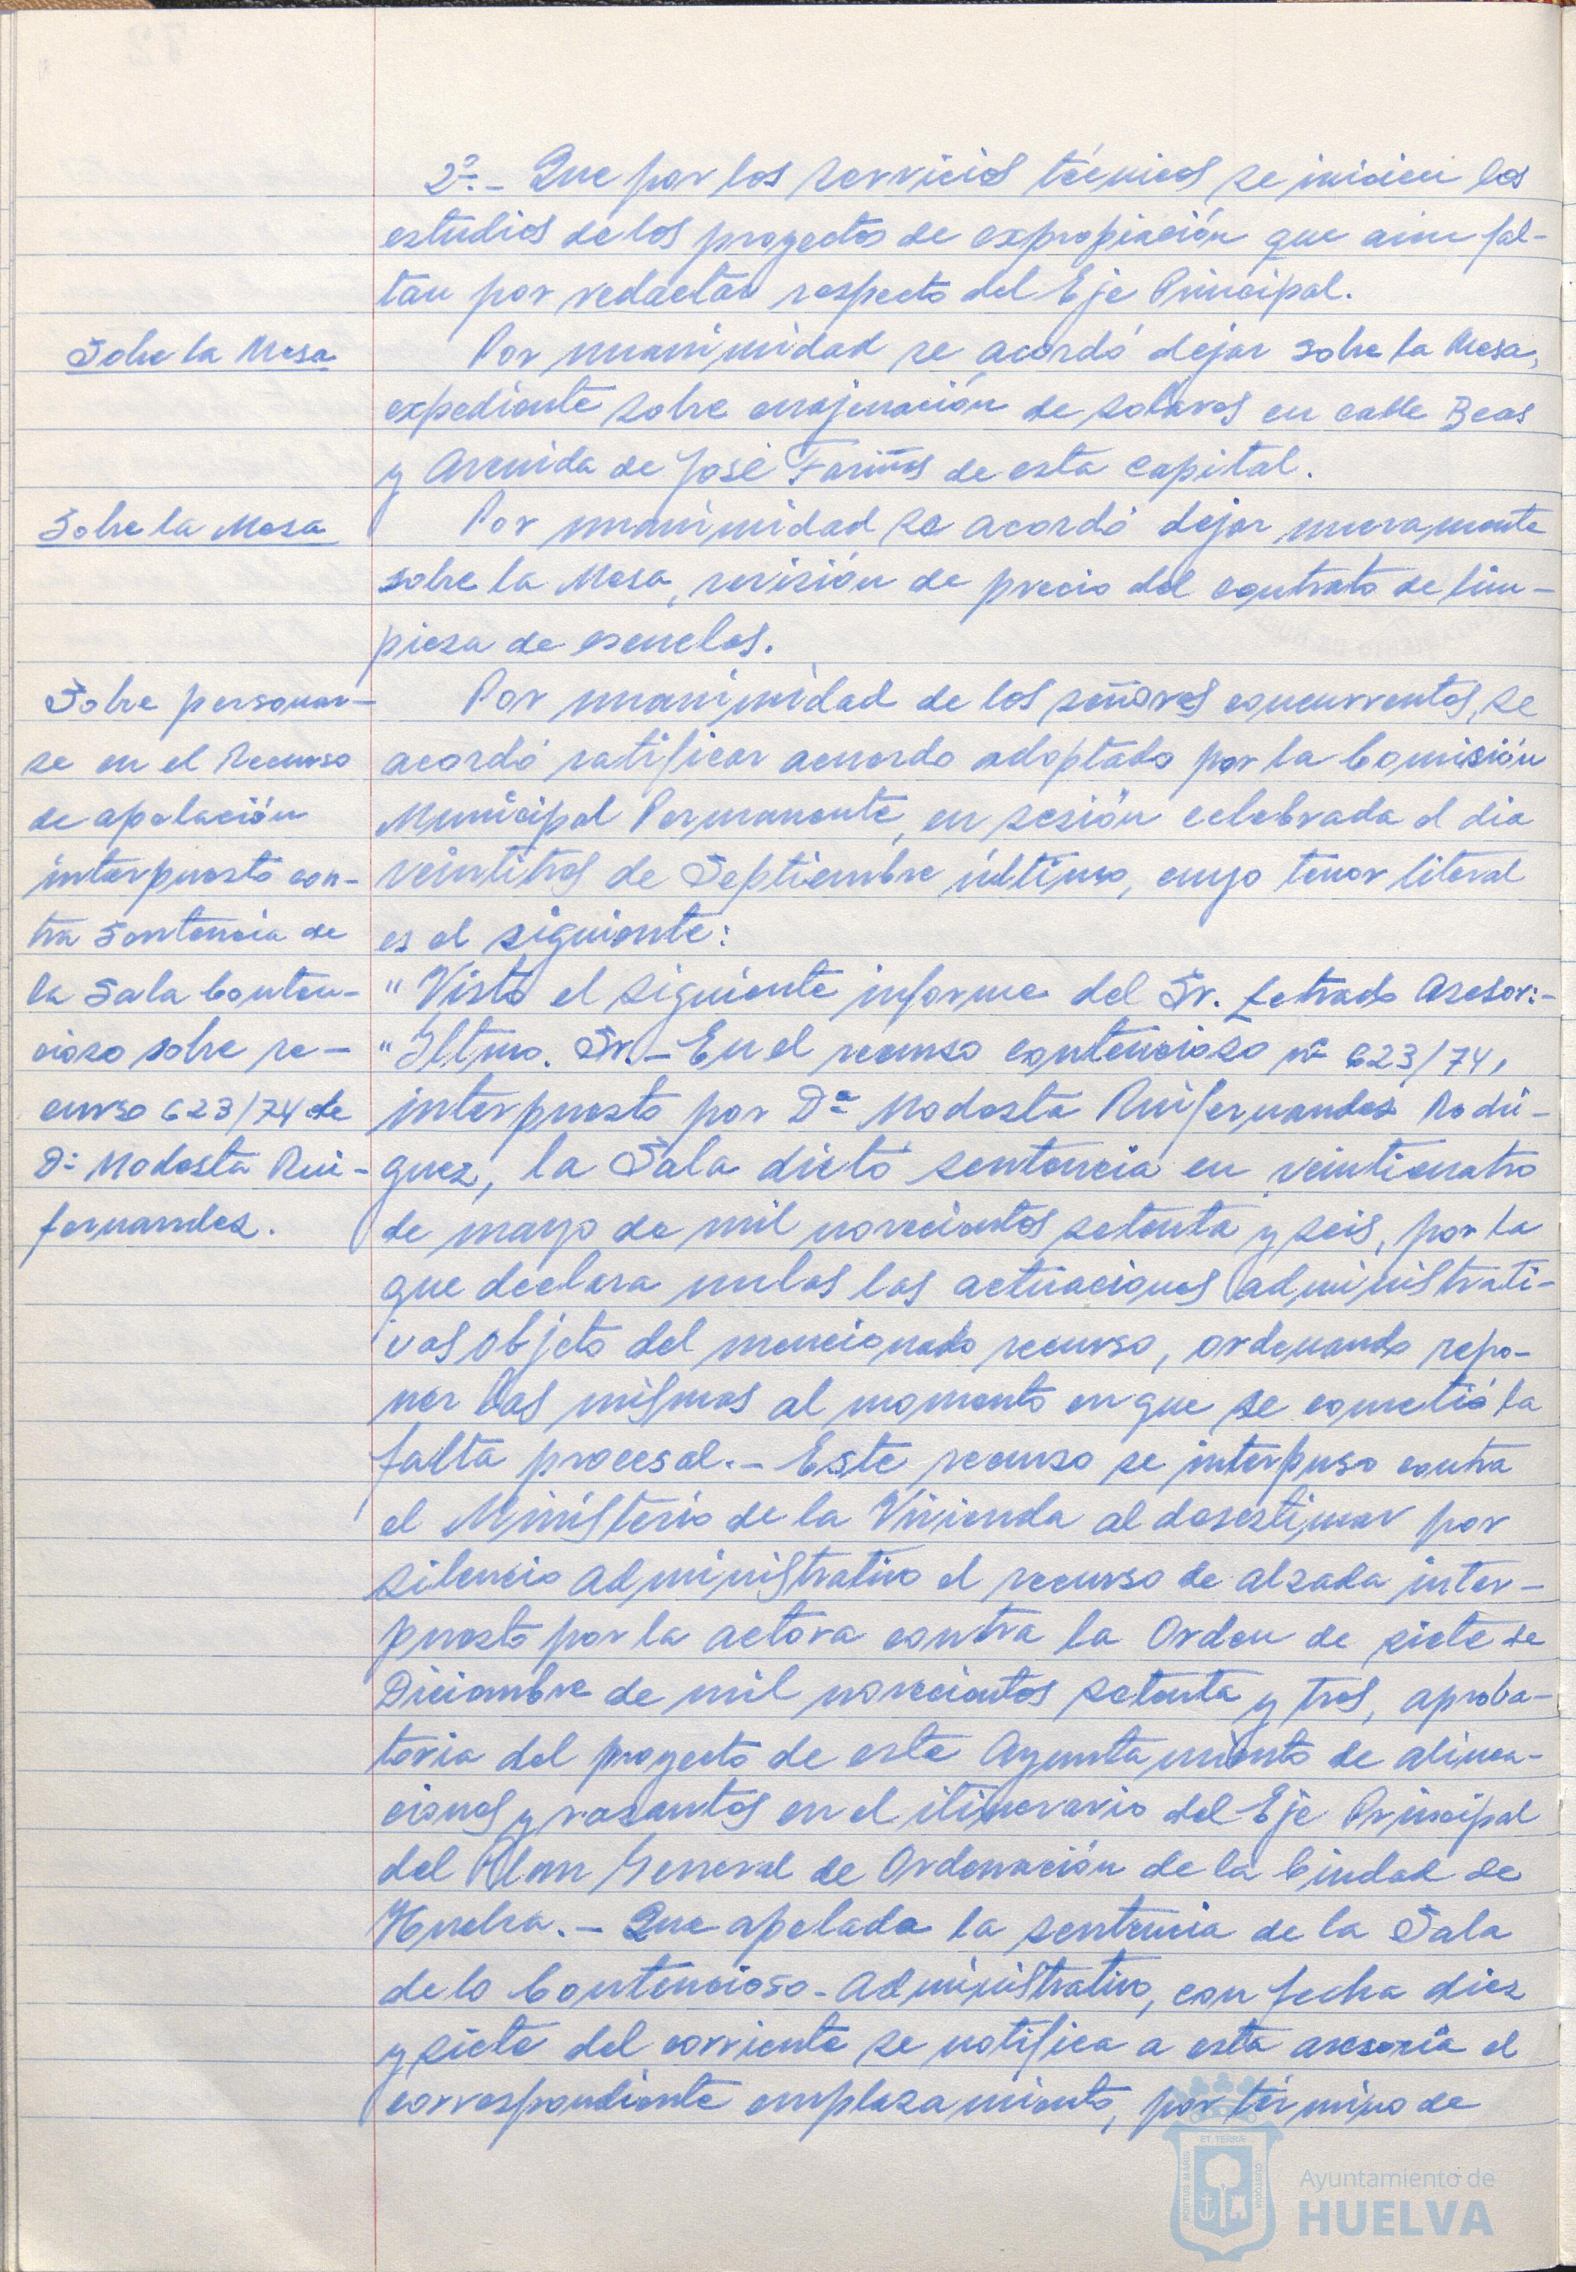 2º.- Que por los servicios técnicos se inicien los
estudios de los proyectos de expropiación que aun fal-
tan por redactar respecto del Eje Principal.
Sobre la Mesa
Por unanimidad se acordó dejar sobre la Mesa,
expediente sobre enajenación de solares en calle Beas
y Avenida de José Fariñas de esta capital.
Sobre la Mesa
Por unanimidad se acordó dejar nuevamente
sobre la Mesa, revisión de precio del contrato de lim-
pieza de escuelas.
Sobre personar-
se en el Recurso
de apelación
interpuesto con-
tra Sentencia de
la Sala Conten-
cioso sobre re-
curso 623/74 de
Dª Modesta Rui-
fernandez.
Por unanimidad de los señores concurrentes, se
acordó ratificar acuerdo adoptado por la Comisión
Municipal Permanente, en sesión celebrada el dia
veintitres de Septiembre último, cuyo tenor literal
es el siguiente:
"Visto el siguiente informe del Sr. Letrado Asesor:-
"Iltmo. Sr.- En el recurso contencioso nº 623/74,
interpuesto por Dª Modesta Ruifernandez Rodri-
guez, la Sala dictó sentencia en veinticuatro
de mayo de mil novecientos setenta y seis, por la
que declara nulas las actuaciones administrati-
vas objeto del mencionado recurso, ordenando repo-
ner las mismas al momento en que se cometió la
falta procesal.- Este recurso se interpuso contra
el Ministerio de la Vivienda al desestimar por
silencio administrativo el recurso de alzada inter-
puesto por la actora contra la Orden de siete de
Diciembre de mil novecientos setenta y tres, aproba-
toria del proyecto de este Ayuntamiento de alinea-
ciones y rasantes en el itinerario del Eje Principal
del Plan General de Ordenación de la Ciudad de
Huelva.- Que apelada la sentencia de la Sala
de lo Contencioso-Administrativo, con fecha diez
y siete del corriente se notifica a esta asesoría el
correspondiente emplazamiento, por término de
PORTUS MARIS
ET TERRAE
CUSTODIA
Ayuntamiento de
HUELVA